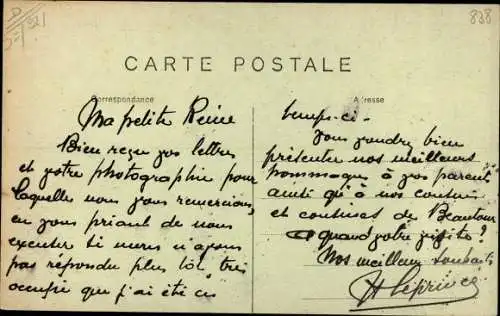 838
CARTE POSTALE
Correspondance
Adresse
Ma petite Reine
Bien reçu vos lettres
et votre photographie pour
laquelle nous vous remercions
en vous priant de nous
excuser si nous n'avons
pas répondu plus tôt, très
occupé que j'ai été ces
temps-ci.
Vous voudrez bien
présenter nos meilleurs
hommages à vos parents
ainsi qu'à nos cousins
et cousines de
quand votre visite?
Nos meilleurs souhaits
H Leprince